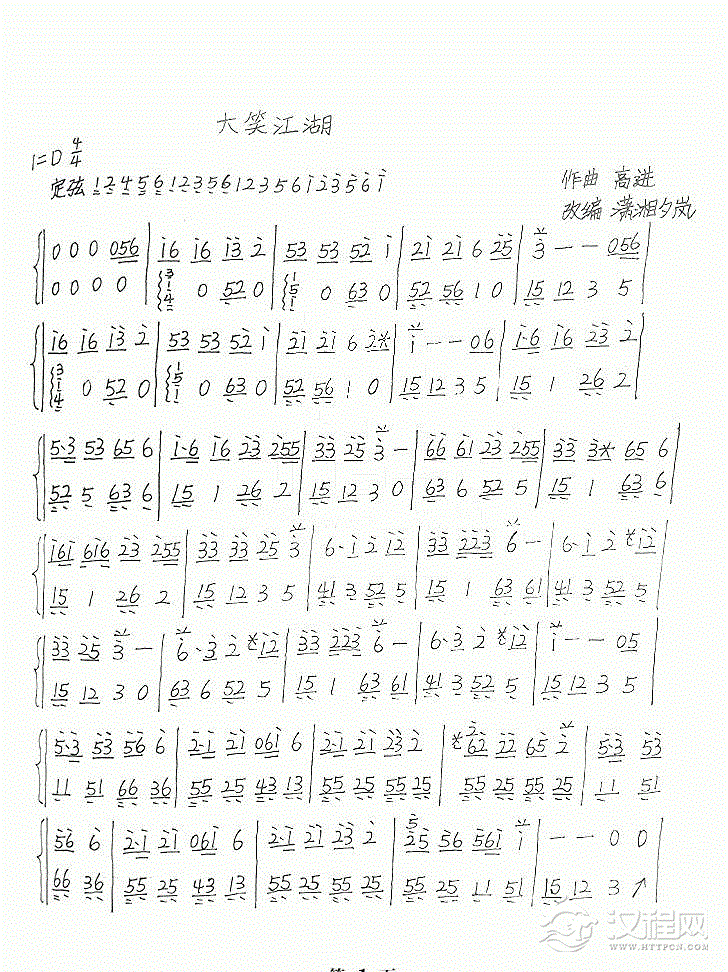 大笑江湖
1=D 4/4
定弦 1 2 4 5 6 1 2 3 5 6 1 2 3 5 6 1 2 3 5 6 1
作曲 高进
改编 潇湘夕岚
0 0 0 056 | 16 16 13 2 | 53 53 52 1 | 21 21 6 25 | 3 — — 056 |
0 0 0 0 | 314 0 52 0 | 151 0 63 0 | 52 56 1 0 | 15 12 3 5 |
16 16 13 2 | 53 53 52 1 | 21 21 6 2* | 1 — — 06 | 1·6 16 23 2 |
314 0 52 0 | 151 0 63 0 | 52 56 1 0 | 15 12 3 5 | 15 1 26 2 |
5·3 53 65 6 | 1·6 16 23 255 | 33 25 3 — | 66 61 23 255 | 33 3* 65 6 |
52 5 63 6 | 15 1 26 2 | 15 12 3 0 | 63 6 52 5 | 15 1 63 6 |
161 616 23 255 | 33 33 25 3 | 6· 1 2 12 | 33 223 6 — | 6· 1 2 *12 |
15 1 26 2 | 15 12 3 5 | 41 3 52 5 | 15 1 63 61 | 41 3 52 5 |
33 25 3 — | 6· 3 2 *12 | 33 223 6 — | 6· 3 2 *12 | 1 — — 05 |
15 12 3 0 | 63 6 52 5 | 15 1 63 61 | 41 3 52 5 | 15 12 3 0 |
5·3 53 56 6 | 2·1 21 061 6 | 2·1 21 23 2 | *62 22 65 2 | 53 53
11 51 66 36 | 55 25 43 13 | 55 25 25 25 | 55 25 25 25 | 11 51
56 6 | 2·1 21 061 6 | 2·1 21 23 2 | 25 56 561 1 | — — 0 0 |
66 36 | 55 25 43 13 | 55 25 25 25 | 55 25 11 51 | 15 12 3 ↗ |
汉程网
HTTPCN.COM